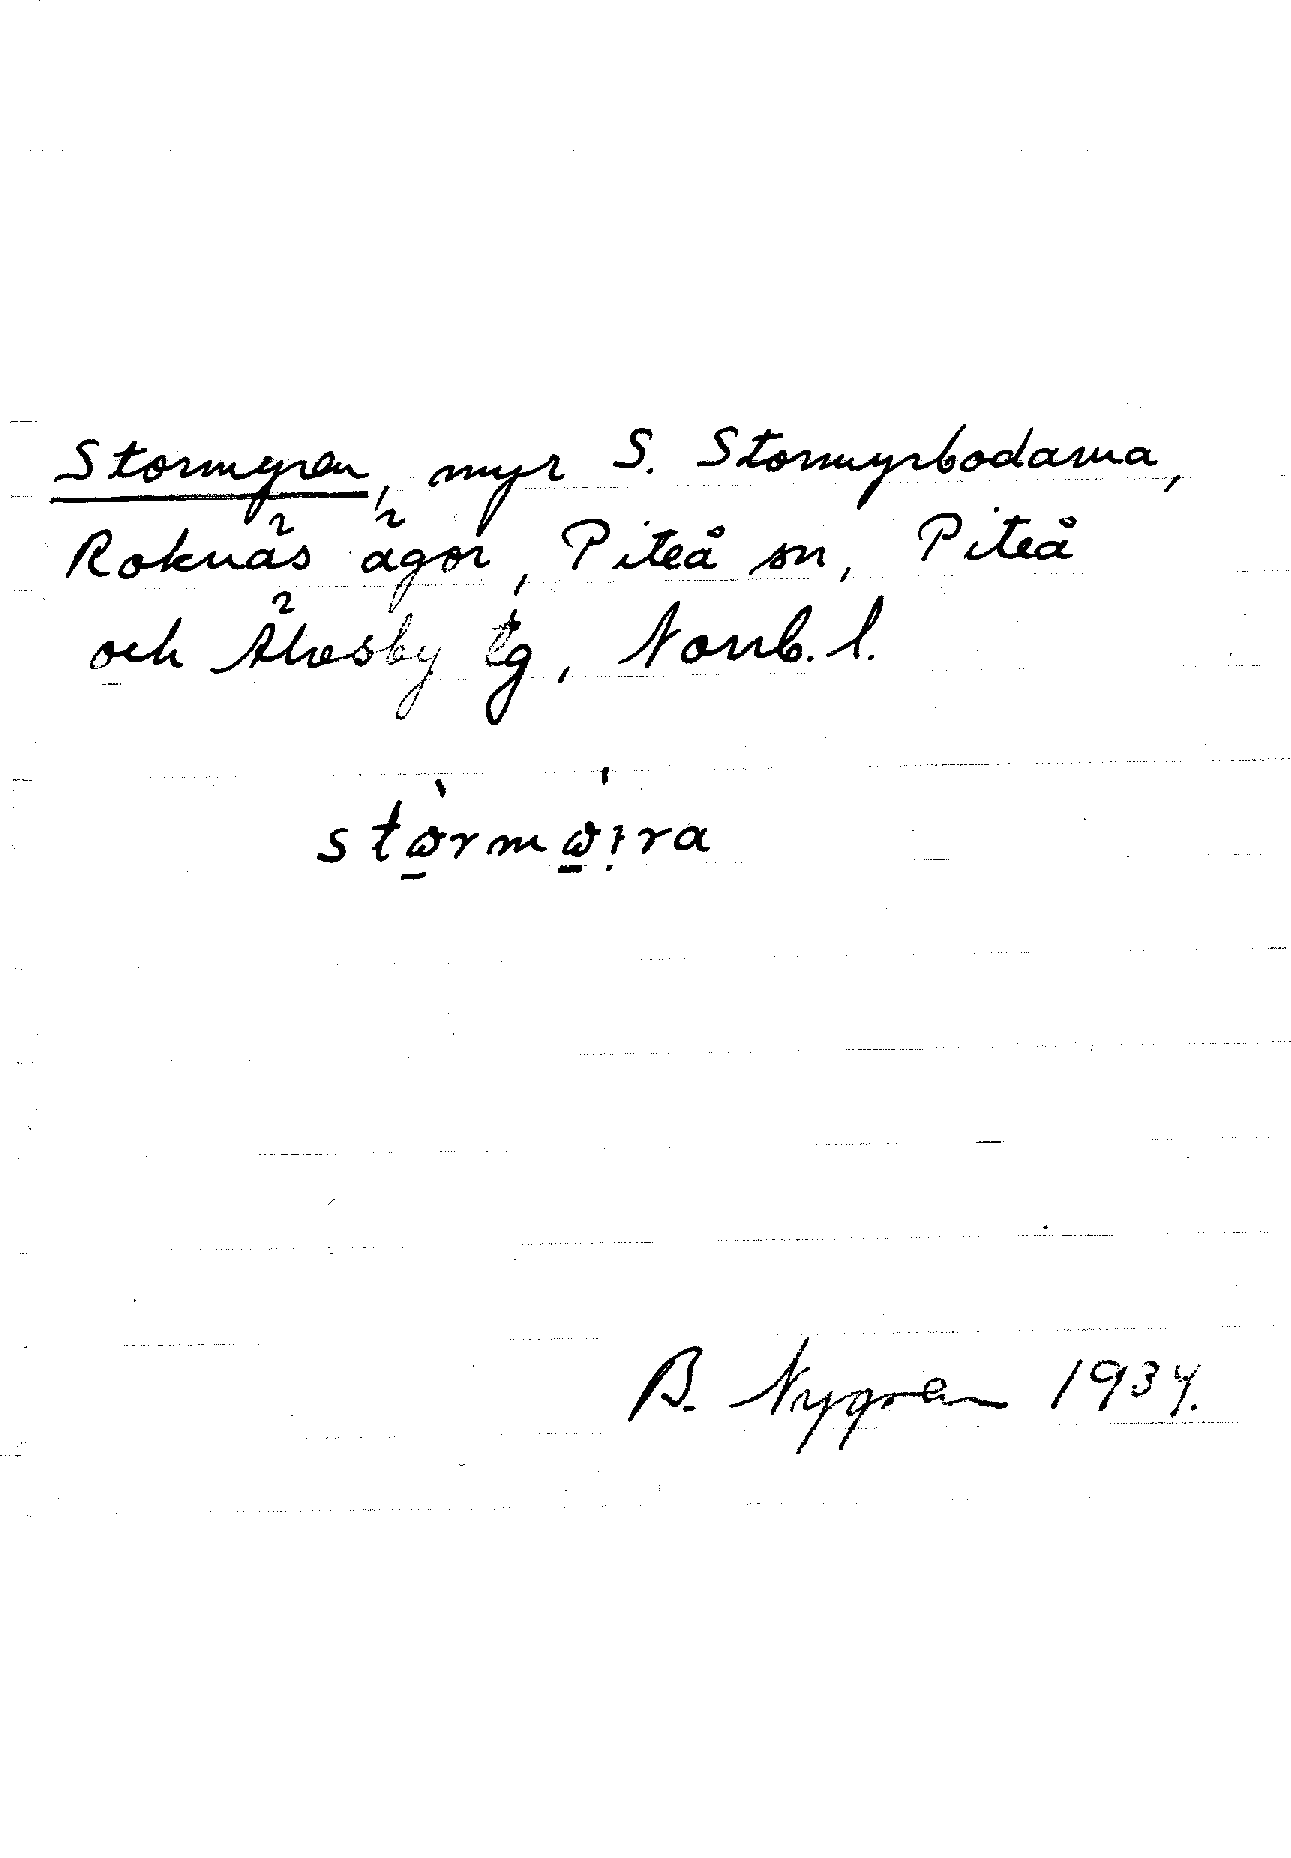 Stormyren, myr S. Stormyrbodarna,
Roknäs ägor, Piteå sn, Piteå
och Älvsby tg, Norrb. l.
stò̱rmò̱ira
B. Nygren 1934.